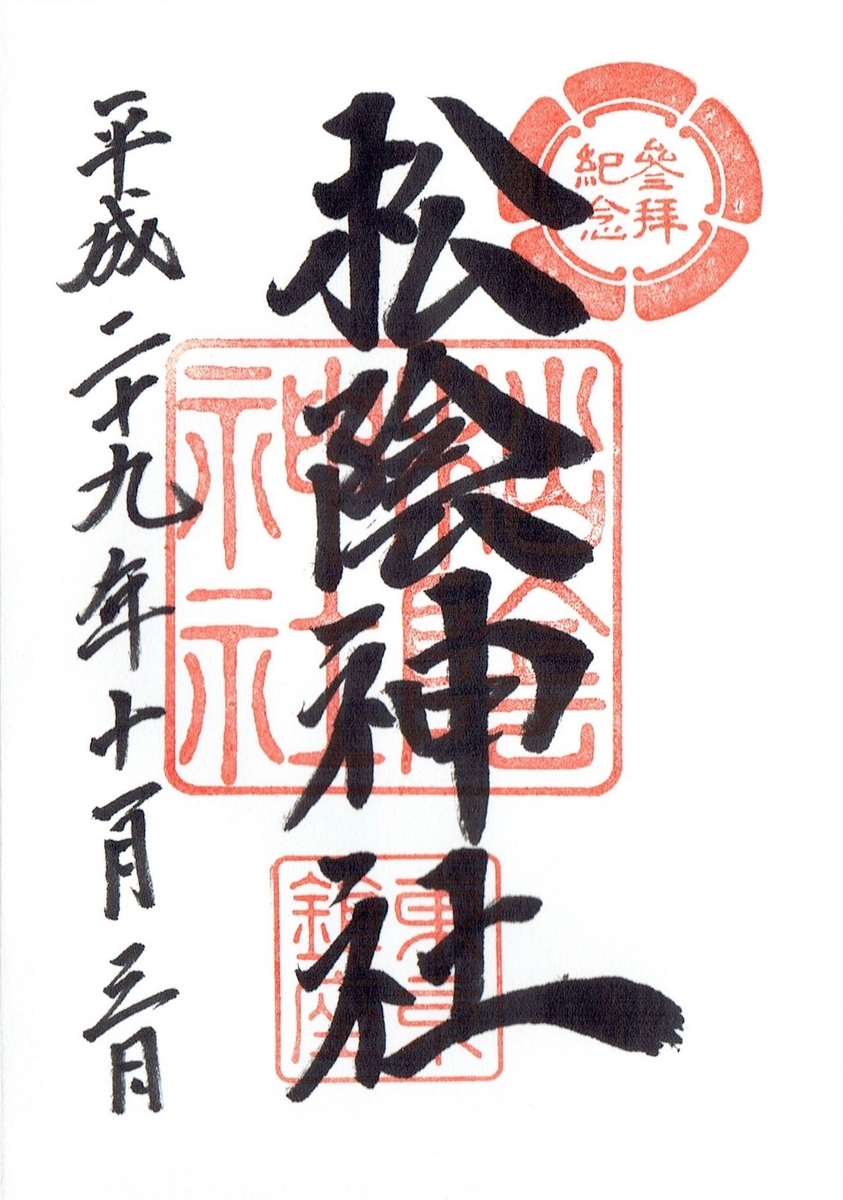 參拝
紀念
松陰神社
松陰
神社
東京
鎮座
平成二十九年十一月三日